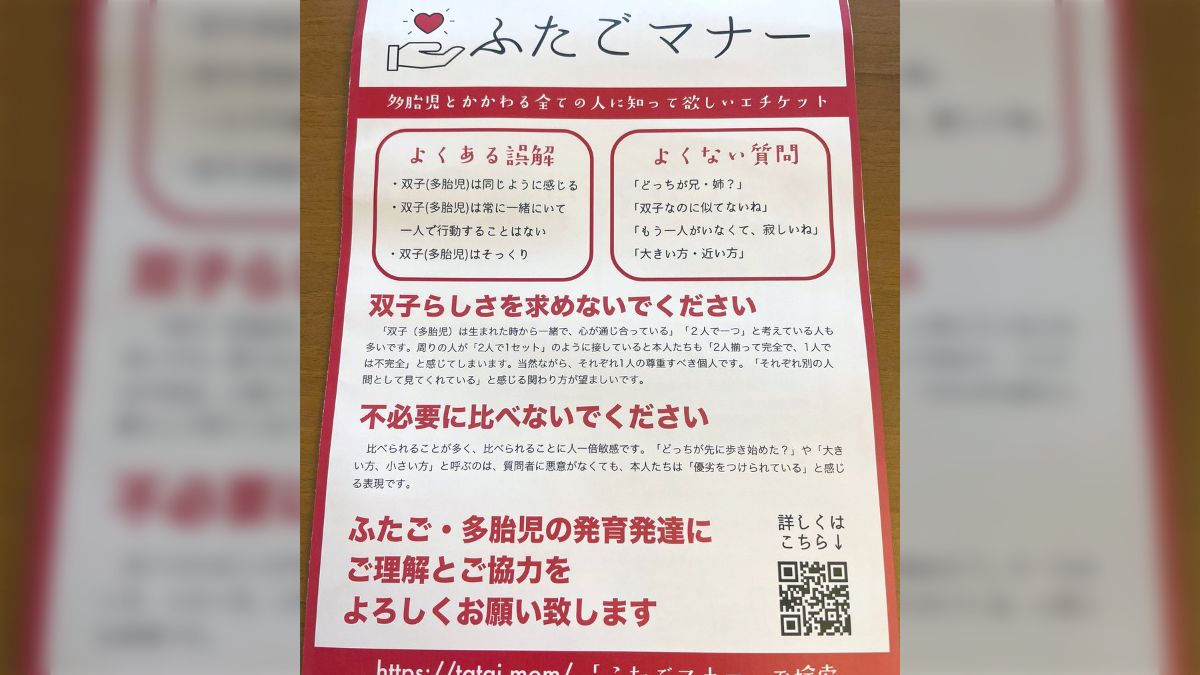 ふたごマナー
多胎児とかかわる全ての人に知って欲しいエチケット
よくある誤解
・双子(多胎児)は同じように感じる
・双子(多胎児)は常に一緒にいて
一人で行動することはない
・双子(多胎児)はそっくり
よくない質問
「どっちが兄・姉？」
「双子なのに似てないね」
「もう一人がいなくて、寂しいね」
「大きい方・近い方」
双子らしさを求めないでください
「双子（多胎児）は生まれた時から一緒で、心が通じ合っている」「２人で一つ」と考えている人も
多いです。周りの人が「2人で1セット」のように接していると本人たちも「2人揃って完全で、1人で
は不完全」と感じてしまいます。当然ながら、それぞれ1人の尊重すべき個人です。「それぞれ別の人
間として見てくれている」と感じる関わり方が望ましいです。
不必要に比べないでください
比べられることが多く、比べられることに人一倍敏感です。「どっちが先に歩き始めた？」や「大き
い方、小さい方」と呼ぶのは、質問者に悪意がなくても、本人たちは「優劣をつけられている」と感じ
る表現です。
ふたご・多胎児の発育発達に
ご理解とご協力を
よろしくお願い致します
詳しくは
こちら↓
https://tatai.mom/「ふたごマナー」で検索